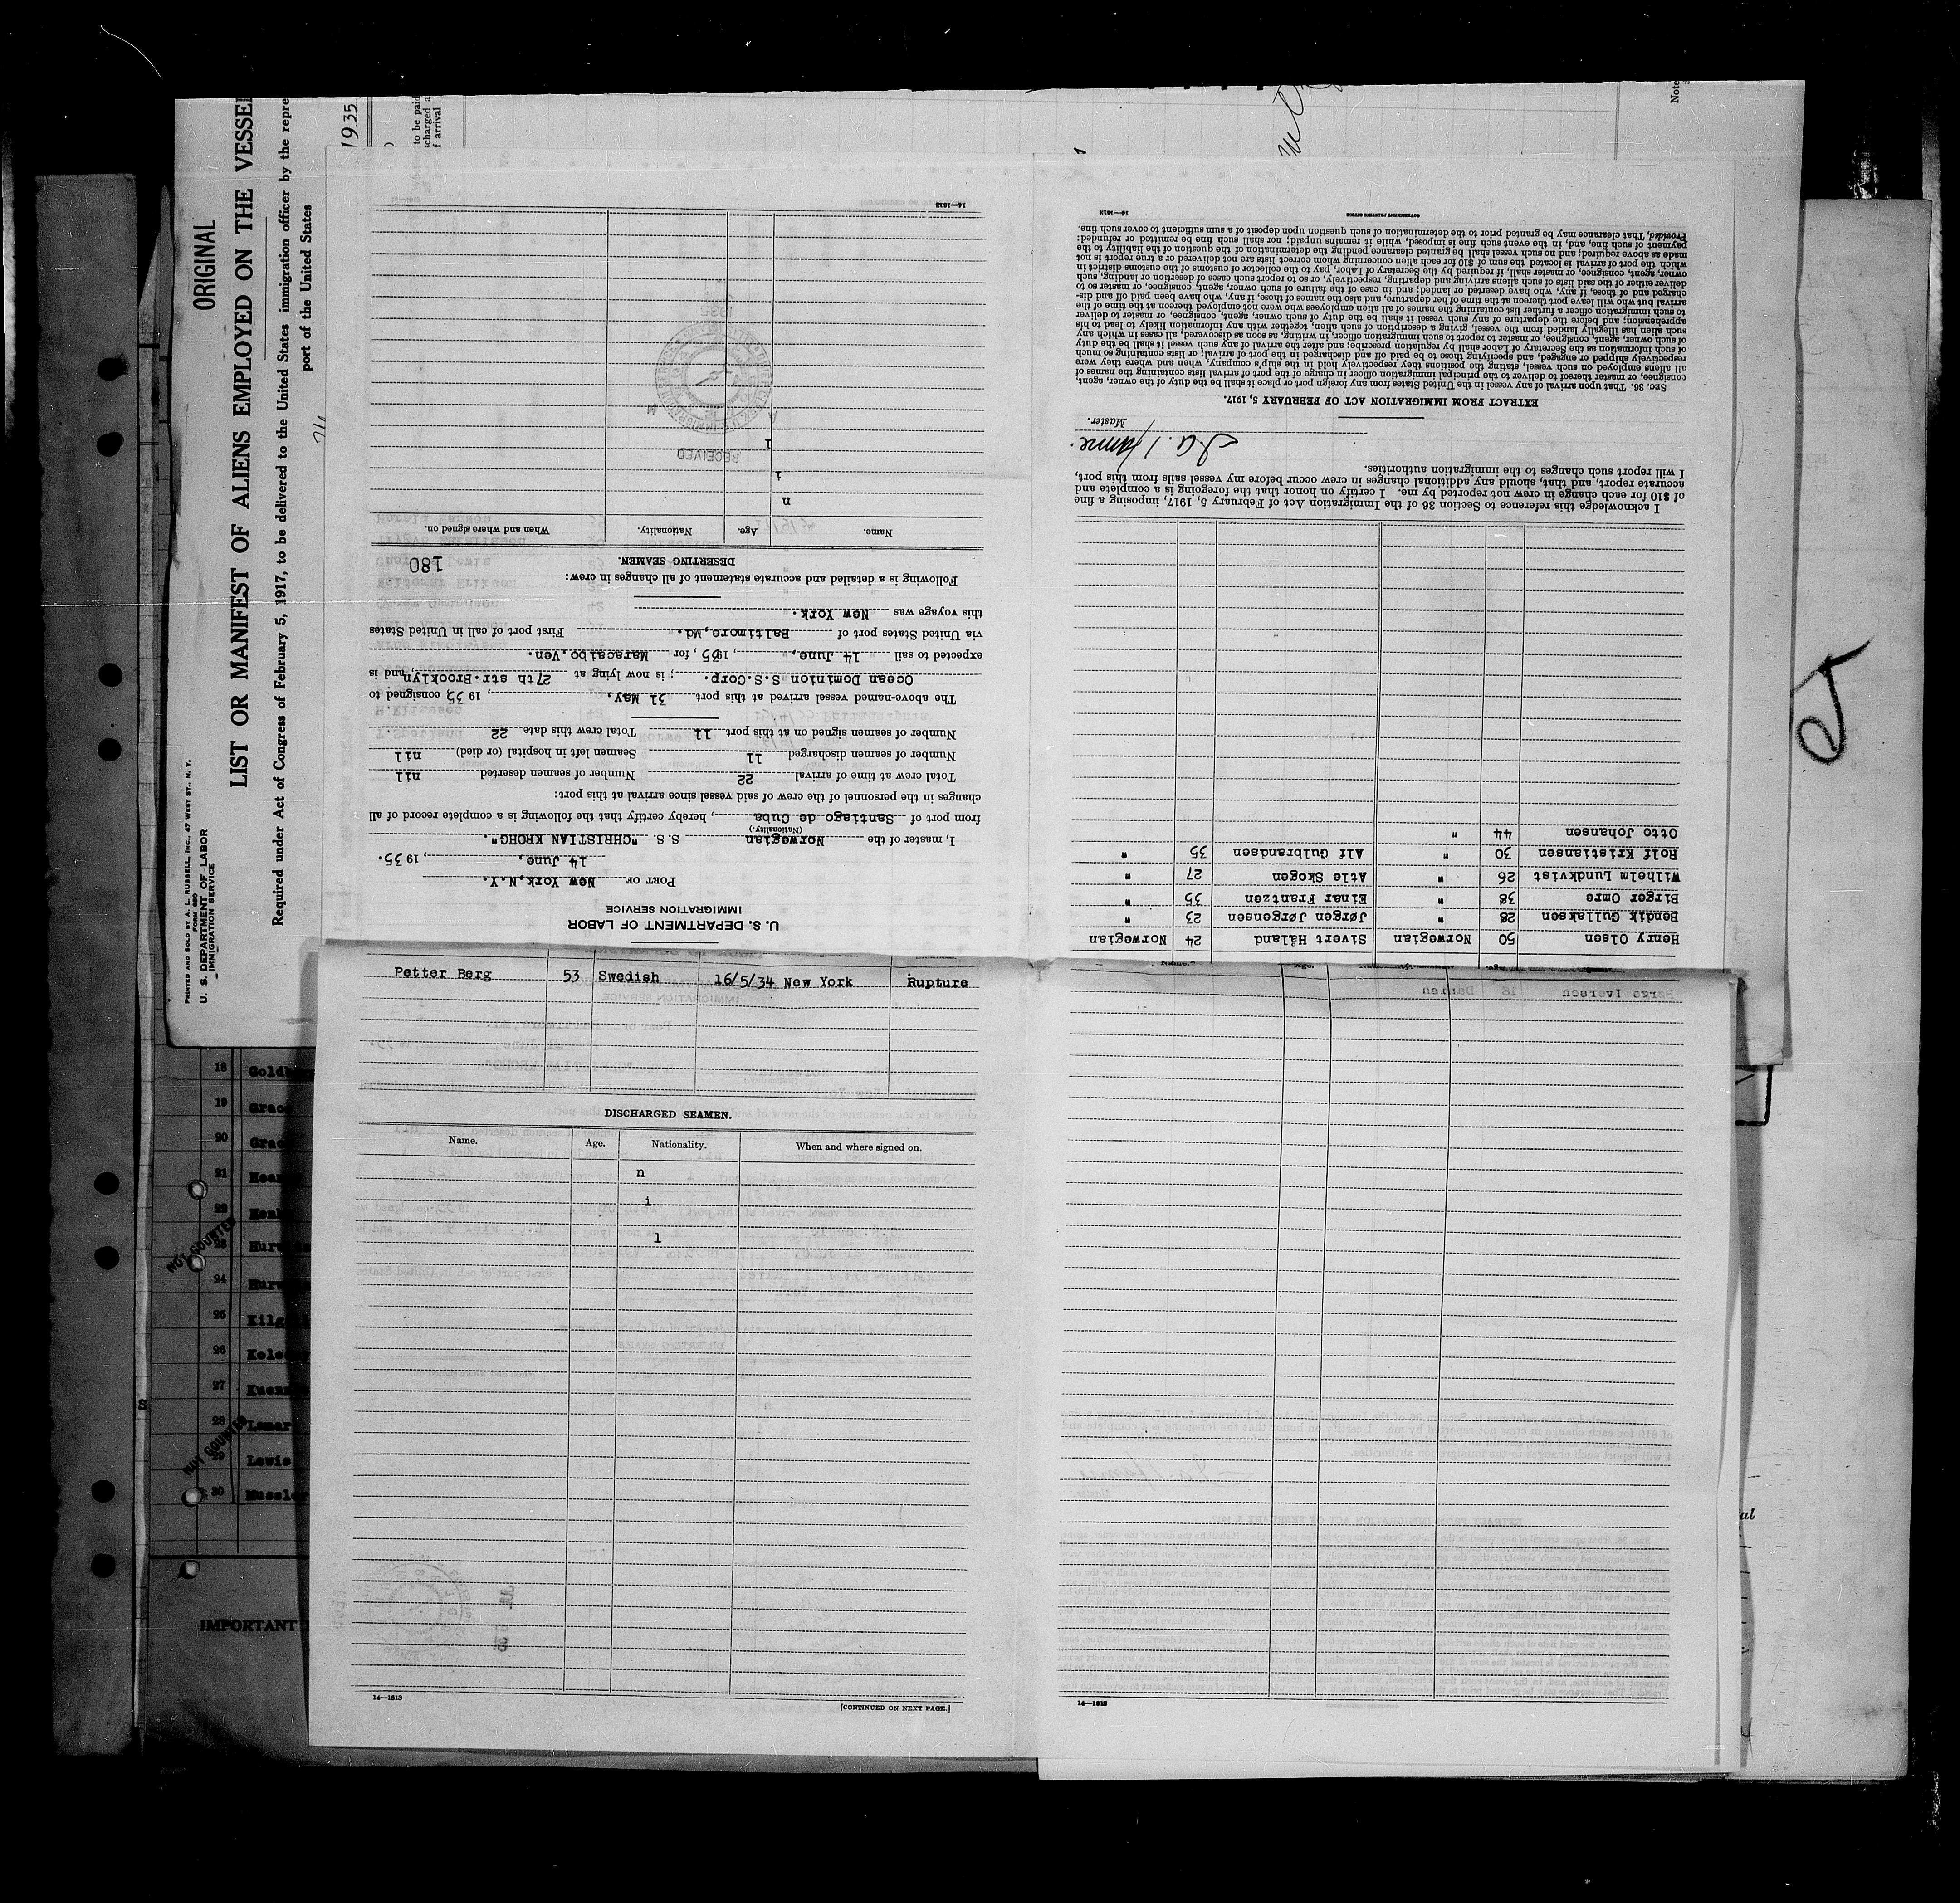 ORIGINAL
LIST OR MANIFEST OF ALIENS EMPLOYED ON THE VESSEL
Required under Act of Congress of February 5, 1917, to be delivered to the United States immigration officer by the repre
port of the United States
PRINTED AND SOLD BY A. L. RUSSELL, INC., 47 WEST ST., N. Y.
FORM 680
U. S. DEPARTMENT OF LABOR
IMMIGRATION SERVICE
1935
to be paid
scharged a
f arrival
Note
U. S. DEPARTMENT OF LABOR
IMMIGRATION SERVICE
PORT OF New York,N.Y.
14 June, , 1935.
I, master of the Norwegian S. S. "CHRISTIAN KROHG".
(Nationality.)
from port of Santiago de Cuba , hereby certify that the following is a complete record of all
changes in the personnel of the crew of said vessel since arrival at this port:
Total crew at time of arrival 22 Number of seamen deserted nil
Number of seamen discharged 11 Seamen left in hospital (or died) nil
Number of seamen signed on at this port 11 Total crew this date 22
The above-named vessel arrived at this port 31 May, , 1935 consigned to
Ocean Dominion S.S.Corp. ; is now lying at 27th str.Brooklyn and is
expected to sail 14 June, , 1935, for Maracaibo.Ven.
via United States port of Baltimore,Md. First port of call in United States
this voyage was New York.
Following is a detailed and accurate statement of all changes in crew:
180
DESERTING SEAMEN.
Name. Age. Nationality. When and where signed on.
n
i
l
RECEIVED
14—1613
Henry Olsen 50 Norwegian Sivert Håland 24 Norwegian
Bendik Gullaksen 28 " Jørgen Jørgensen 23 "
Birger Omre 38 " Einar Frantzen 35 "
Wilhelm Lundkvist 26 " Atle Skogen 27 "
Rolf Kristiansen 30 " Alf Gulbrandsen 35 "
Otto Johansen 44 "
I acknowledge this reference to Section 36 of the Immigration Act of February 5, 1917, imposing a fine
of $10 for each change in crew not reported by me. I certify on honor that the foregoing is a complete and
accurate report, and that, should any additional changes in crew occur before my vessel sails from this port,
I will report such changes to the immigration authorities.
Master.
EXTRACT FROM IMMIGRATION ACT OF FEBRUARY 5, 1917.
SEC. 36. That upon arrival of any vessel in the United States from any foreign port or place it shall be the duty of the owner, agent,
consignee, or master thereof to deliver to the principal immigration officer in charge of the port of arrival lists containing the names of
all aliens employed on such vessel, stating the positions they respectively hold in the ship's company, when and where they were
respectively shipped or engaged, and specifying those to be paid off and discharged in the port of arrival; or lists containing so much
of such information as the Secretary of Labor shall by regulation prescribe; and after the arrival of any such vessel it shall be the duty
of such owner, agent, consignee, or master to report to such immigration officer, in writing, as soon as discovered, all cases in which any
such alien has illegally landed from the vessel, giving a description of such alien, together with any information likely to lead to his
apprehension; and before the departure of any such vessel it shall be the duty of such owner, agent, consignee, or master to deliver
to such immigration officer a further list containing the names of all alien employees who were not employed thereon at the time of the
arrival but who will leave port thereon at the time of her departure, and also the names of those, if any, who have been paid off and dis-
charged and of those, if any, who have deserted or landed; and in case of the failure of such owner, agent, consignee, or master to
deliver either of the said lists of such aliens arriving and departing, respectively, or so to report such cases of desertion or landing, such
owner, agent, consignee, or master shall, if required by the Secretary of Labor, pay to the collector of customs of the customs district in
which the port of arrival is located the sum of $10 for each alien concerning whom correct lists are not delivered or a true report is not
made as above required; and no such vessel shall be granted clearance pending the determination of the question of the liability to the
payment of such fine, and, in the event such fine is imposed, while it remains unpaid; nor shall such fine be remitted or refunded:
Provided, That clearance may be granted prior to the determination of such question upon deposit of a sum sufficient to cover such fine.
14—1613 GOVERNMENT PRINTING OFFICE
Petter Berg 53 Swedish 16/5/34 New York Rupture
DISCHARGED SEAMEN.
Name. Age. Nationality. When and where signed on.
n
i
l
14—1613
[CONTINUED ON NEXT PAGE.]
14—1613
18 Goldb
19 Grac
20 Gra
21
22
23 Hur
24 Hur
25 Kilg
26 Kole
27
28 Lemar
29 Lewis
30 Mussler
NOT COUNTED
NOT COUNTED
IMPORTANT